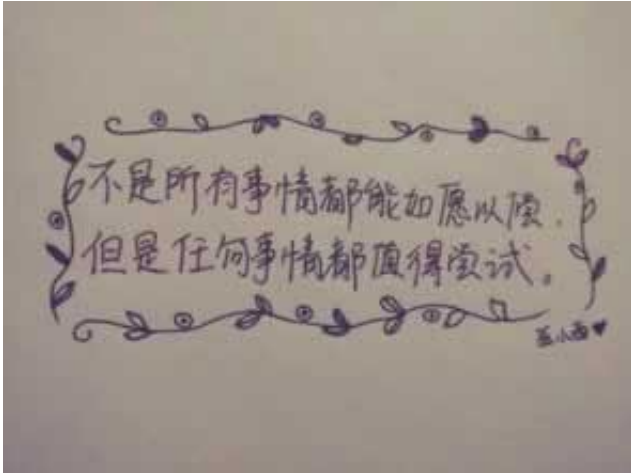 不是所有事情都能如愿以偿.
但是任何事情都值得尝试。
蓝小西♥